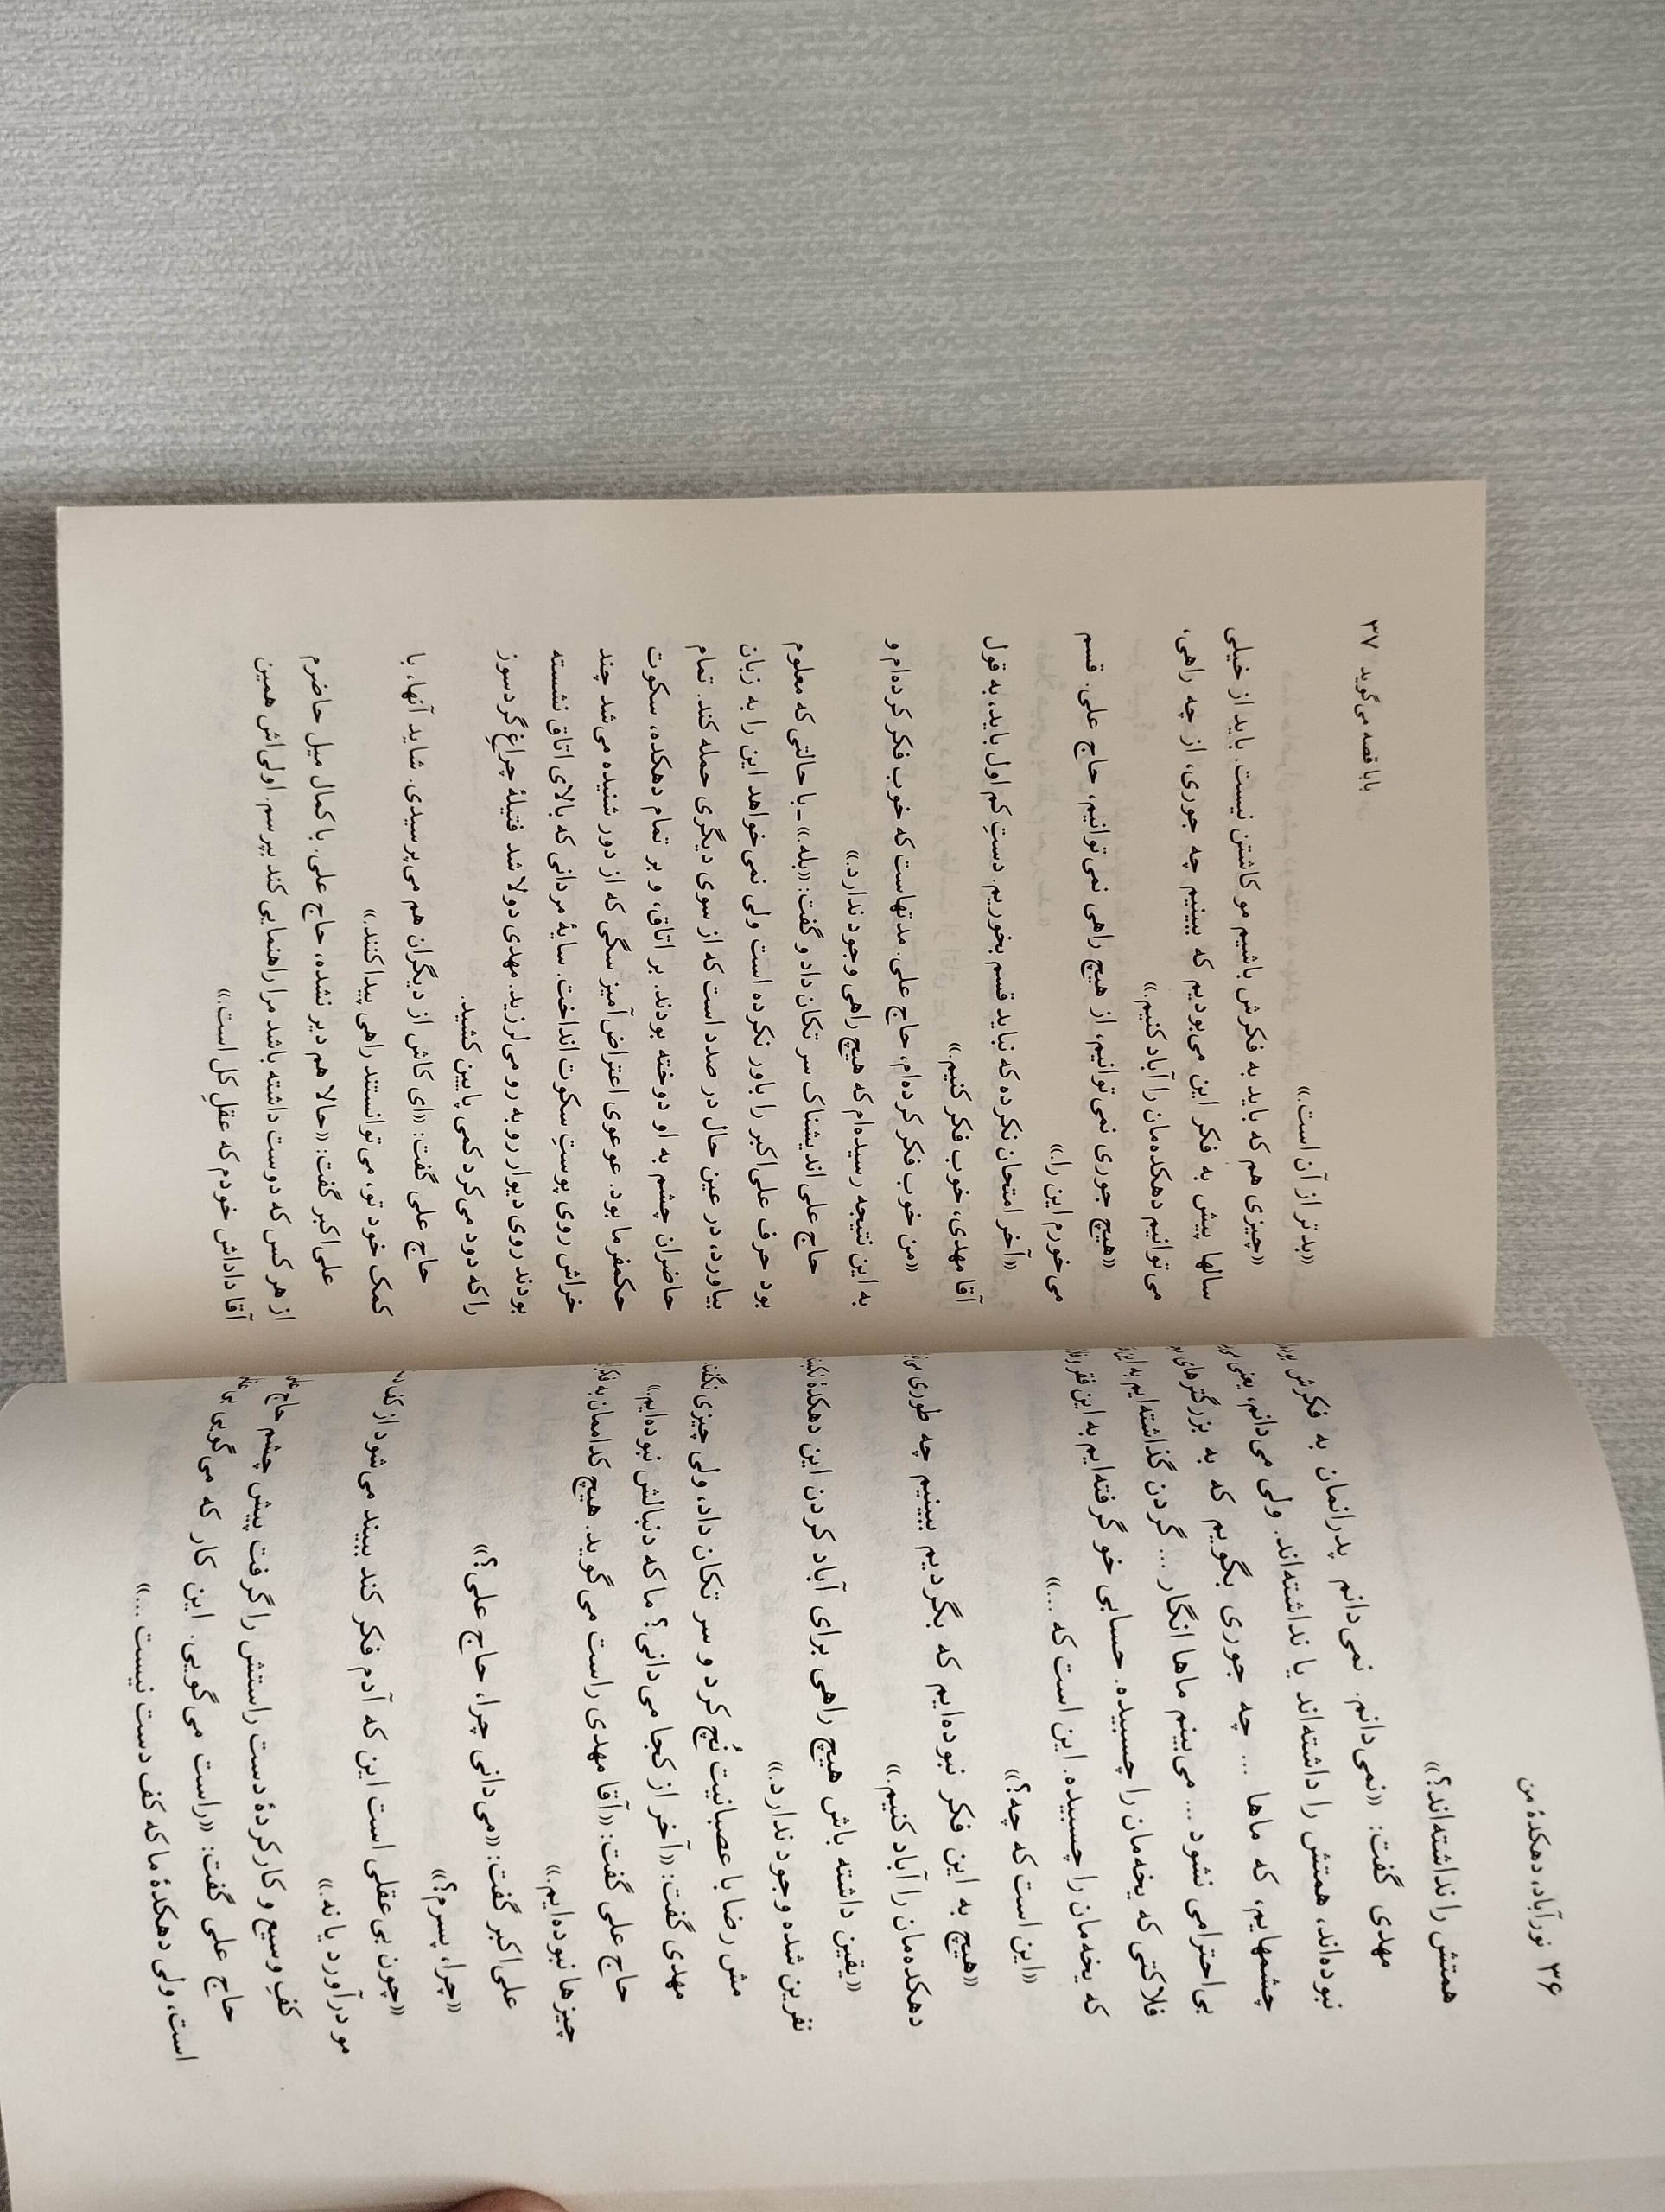 ۳۶ نورآباد، دهکدهٔ من
همتش را نداشته‌اند؟»
مهدی گفت: «نمی‌دانم. نمی‌دانم پدرانمان به فکرش
نبوده‌اند، همتش را داشته‌اند یا نداشته‌اند. ولی می‌دانم، یعنی
چشمهایم، که ماها ... چه جوری بگویم که به بزرگترهای
بی‌احترامی نشود ... می‌بینم ماها انگار ... گردن گذاشته‌ایم به
فلاکتی که یخه‌مان را چسبیده. حسابی خو گرفته‌ایم به این فقر
که یخه‌مان را چسبیده. این است که ...»
«این است که چه؟»
«هیچ به این فکر نبوده‌ایم که بگردیم ببینیم چه طوری
دهکده‌مان را آباد کنیم.»
«یقین داشته باش هیچ راهی برای آباد کردن این دهکدهٔ
نفرین شده وجود ندارد.»
مش رضا با عصبانیت نُچ کرد و سر تکان داد، ولی چیزی
مهدی گفت: «آخر از کجا می‌دانی؟ ما که دنبالش نبوده‌ایم.»
حاج علی گفت: «آقا مهدی راست می‌گوید. هیچ کداممان به
چیزها نبوده‌ایم.»
علی‌اکبر گفت: «می‌دانی چرا، حاج علی؟»
«چرا، پسرم؟»
«چون بی‌عقلی است این که آدم فکر کند ببیند می‌شود از کف
مو درآورد یا نه.»
کفِ وسیع و کارکردهٔ دست راستش را گرفت پیش چشم حاج
حاج علی گفت: «راست می‌گویی. این کار که می‌گویی بی
است، ولی دهکدهٔ ما که کف دست نیست ...»
باباقصه می‌گوید ۳۷
«بدتر از آن است.»
«چیزی هم که باید به فکرش باشیم مو کاشتن نیست. باید از خیلی
سالها پیش به فکر این می‌بودیم که ببینیم چه جوری، از چه راهی،
می‌توانیم دهکده‌مان را آباد کنیم.»
«هیچ جوری نمی‌توانیم، از هیچ راهی نمی‌توانیم، حاج علی. قسم
می‌خورم این را.»
«آخر امتحان نکرده که نباید قسم بخوریم. دستِ کم اول باید، به قول
آقا مهدی، خوب فکر کنیم.»
«من خوب فکر کرده‌ام، حاج علی. مدتهاست که خوب فکر کرده‌ام و
به این نتیجه رسیده‌ام که هیچ راهی وجود ندارد.»
حاج علی اندیشناک سر تکان داد و گفت: «بله.» ـ با حالتی که معلوم
بود حرف علی‌اکبر را باور نکرده است ولی نمی‌خواهد این را به زبان
بیاورد، در عین حال در صدد است که از سوی دیگری حمله کند. تمام
حاضران چشم به او دوخته بودند. بر اتاق، و بر تمام دهکده، سکوت
حکمفرما بود. عوعوی اعتراض‌آمیز سگی که از دور شنیده می‌شد چند
خراش روی پوستِ سکوت انداخت. سایهٔ مردانی که بالای اتاق نشسته
بودند روی دیوار رو به رو می‌لرزید. مهدی دولا شد فتیلهٔ چراغِ گردسوز
را که دود می‌کرد کمی پایین کشید.
حاج علی گفت: «ای کاش از دیگران هم می‌پرسیدی. شاید آنها، با
کمک خود تو، می‌توانستند راهی پیدا کنند.»
علی‌اکبر گفت: «حالا هم دیر نشده، حاج علی. با کمال میل حاضرم
از هر کس که دوست داشته باشد مرا راهنمایی کند بپرسم. اولی‌اش همین
آقا داداش خودم که عقلِ کل است.»